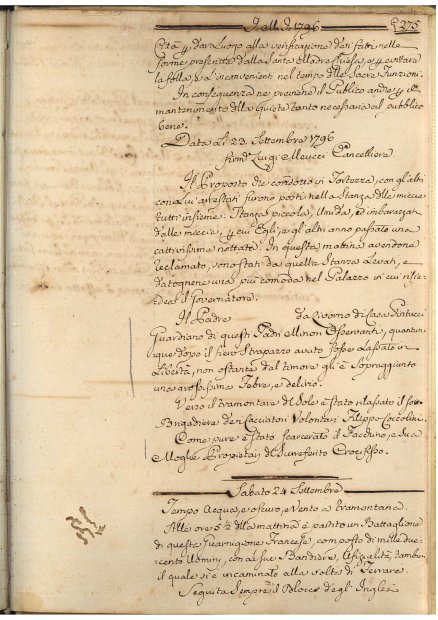 Del dì 1796 275
Città p. dar luogo alla verificazione de' fatti nelle
forme prescritte dalla Santa Madre Chiesa, e p. evitare
la folla, e gl'inconvenienti nel tempo delle Sacre Funzioni.
In conseguenza ne previene il Publico anche p. il
mantenimento della Quiete tanto necessaria al pubblico
bene.
Data li 23. Settembre 1796
firm.o Luigi Meucci Cancelliere
Il Proposto che condotto in Fortezza, con gl'altri
con Lui arrestati furono posti nella Stanza delle miccie
tutti insieme: Stanza piccola, Umida, e imbarazzata
dalle miccie, p. cui Egli, e gl'altri anno passato una
cattivissima nottata. In questa mattina avendone
reclamato, sono stati da quella Stanza Levati, e
datogliene una più comoda nel Palazzo in cui risie-
deva il Governatore.
Il Padre da Livorno di Casa
Guardiano di questi Padri Minori Osservanti, quantun-
que dopo il fiero Strapazzo avuto fosse Lasciato in
Libertà, non ostante dal timore gli è Sopraggiunto
una grossissima Febre, e delirio.
Verso il tramontare del Sole è stato rilasciato il
Brigadiere de' Cacciatori Volontari Filippo Coccolini.
Come pure è stato scarcerato il e Sua
Moglie Proprietari del Crocifisso.
Sabato 24 Settembre
Tempo Acqua, e oscuro, e Vento a Tramontana
Alle ore 5 1/2 della mattina è partito un Battaglione
di questa Guarnigione Francese, composto di mille due-
cento Uomini, con le sue Bandiere, Ufizialità, Tamburi
il quale si è incaminato alla volta di Ferrara.
Seguita Sempre il Blocco degl'Inglesi